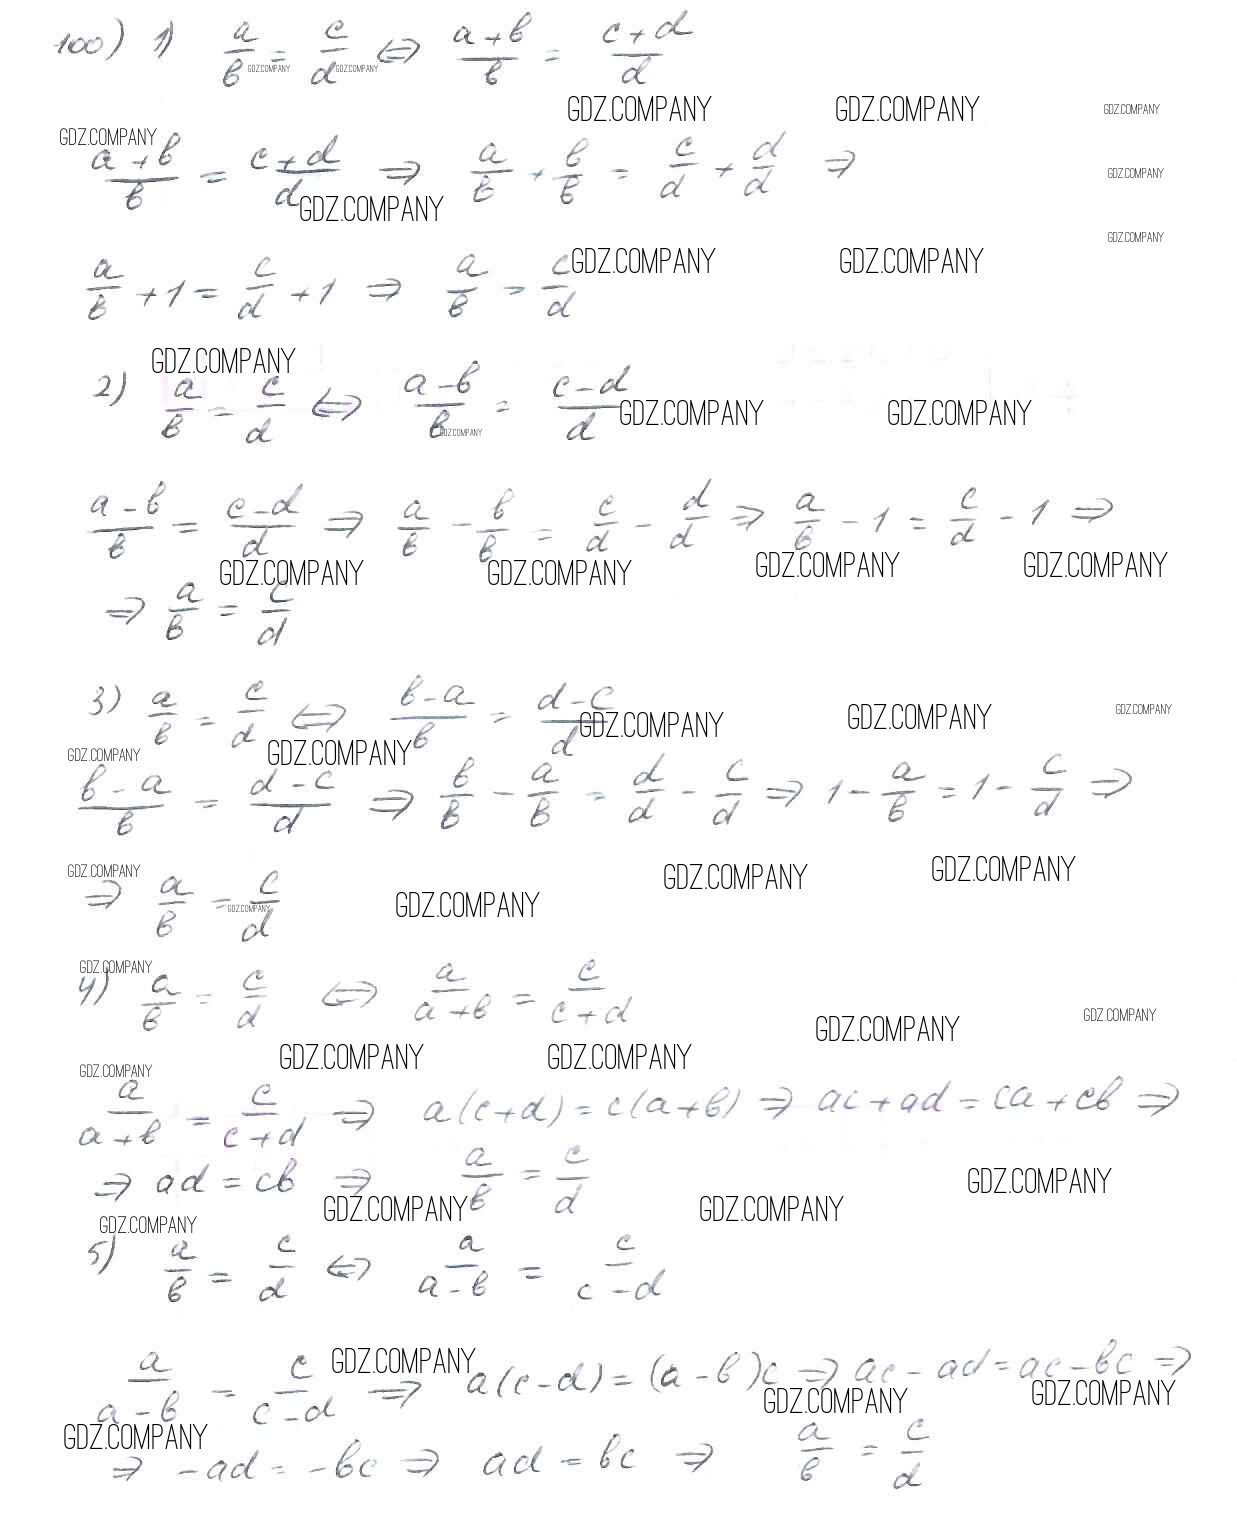 100) 1) a/в = c/d ⇔ (a+в)/в = (c+d)/d
GDZ.COMPANY GDZ.COMPANY
GDZ.COMPANY GDZ.COMPANY GDZ.COMPANY
GDZ.COMPANY
(a+в)/в = (c+d)/d ⇒ a/в + в/в = c/d + d/d ⇒
GDZ.COMPANY
GDZ.COMPANY
GDZ.COMPANY
GDZ.COMPANY GDZ.COMPANY
a/в + 1 = c/d + 1 ⇒ a/в = c/d
GDZ.COMPANY
2) a/в = c/d ⇔ (a-в)/в = (c-d)/d
GDZ.COMPANY GDZ.COMPANY GDZ.COMPANY
(a-в)/в = (c-d)/d ⇒ a/в - в/в = c/d - d/d ⇒ a/в - 1 = c/d - 1 ⇒
GDZ.COMPANY GDZ.COMPANY GDZ.COMPANY GDZ.COMPANY
⇒ a/в = c/d
3) a/в = c/d ⇔ (в-a)/в = (d-c)/d
GDZ.COMPANY GDZ.COMPANY GDZ.COMPANY
GDZ.COMPANY GDZ.COMPANY
(в-a)/в = (d-c)/d ⇒ в/в - a/в = d/d - c/d ⇒ 1 - a/в = 1 - c/d ⇒
GDZ.COMPANY GDZ.COMPANY GDZ.COMPANY
⇒ a/в = c/d
GDZ.COMPANY GDZ.COMPANY
GDZ.COMPANY
4) a/в = c/d ⇔ a/(a+в) = c/(c+d)
GDZ.COMPANY GDZ.COMPANY
GDZ.COMPANY GDZ.COMPANY
GDZ.COMPANY
a/(a+в) = c/(c+d) ⇒ a(c+d) = c(a+в) ⇒ ac+ad = ca+cв ⇒
⇒ ad = cв ⇒ a/в = c/d
GDZ.COMPANY
GDZ.COMPANY GDZ.COMPANY
GDZ.COMPANY
5) a/в = c/d ⇔ a/(a-в) = c/(c-d)
GDZ.COMPANY
a/(a-в) = c/(c-d) ⇒ a(c-d) = (a-в)c ⇒ ac-ad = ac-вc ⇒
GDZ.COMPANY GDZ.COMPANY
GDZ.COMPANY
⇒ -ad = -вc ⇒ ad = вc ⇒ a/в = c/d